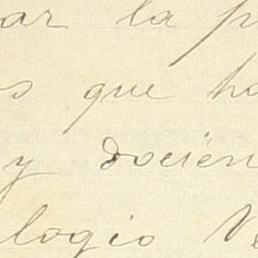 ar la p
s que ha
y docien
logio Ve